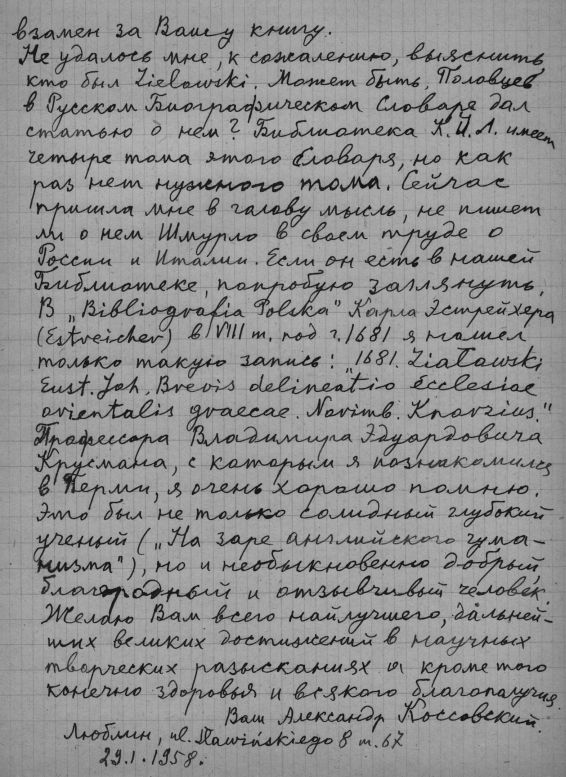 взамен за Вашу книгу.
Не удалось мне, к сожалению, выяснить
кто был Zielowski. Может быть, Половцев
в Русском Биографическом Словаре дал
статью о нем? Библиотека К.U.L. имеет
четыре тома этого Словаря, но как
раз нет нужного тома. Сейчас
пришла мне в голову мысль, не пишет
ли о нем Шмурло в своем труде о
России и Италии. Если он есть в нашей
Библиотеке, попробую заглянуть.
В „Bibliografia Polska" Карла Эстрейхера
(Estreicher) в VIII т. под г. 1681 я нашел
только такую запись: "1681. Ziałowski
Eust. Joh. Brevis delineatio Ecclesiae
orientalis graecae. Norimb. Knorzius."
Профессора Владимира Эдуардовича
Крусмана, с которым я познакомился
в Перми, я очень хорошо помню.
Это был не только солидный глубокий
ученый („На заре английского гума-
низма"), но и необыкновенно добрый,
благородный и отзывчивый человек.
Желаю Вам всего наилучшего, дальней-
ших великих достижений в научных
творческих разысканиях и кроме того
конечно здоровья и всякого благополучия.
Ваш Александр Коссовский.
Люблин, ul. Sławińskiego 8 m. 67
29.1.1958.